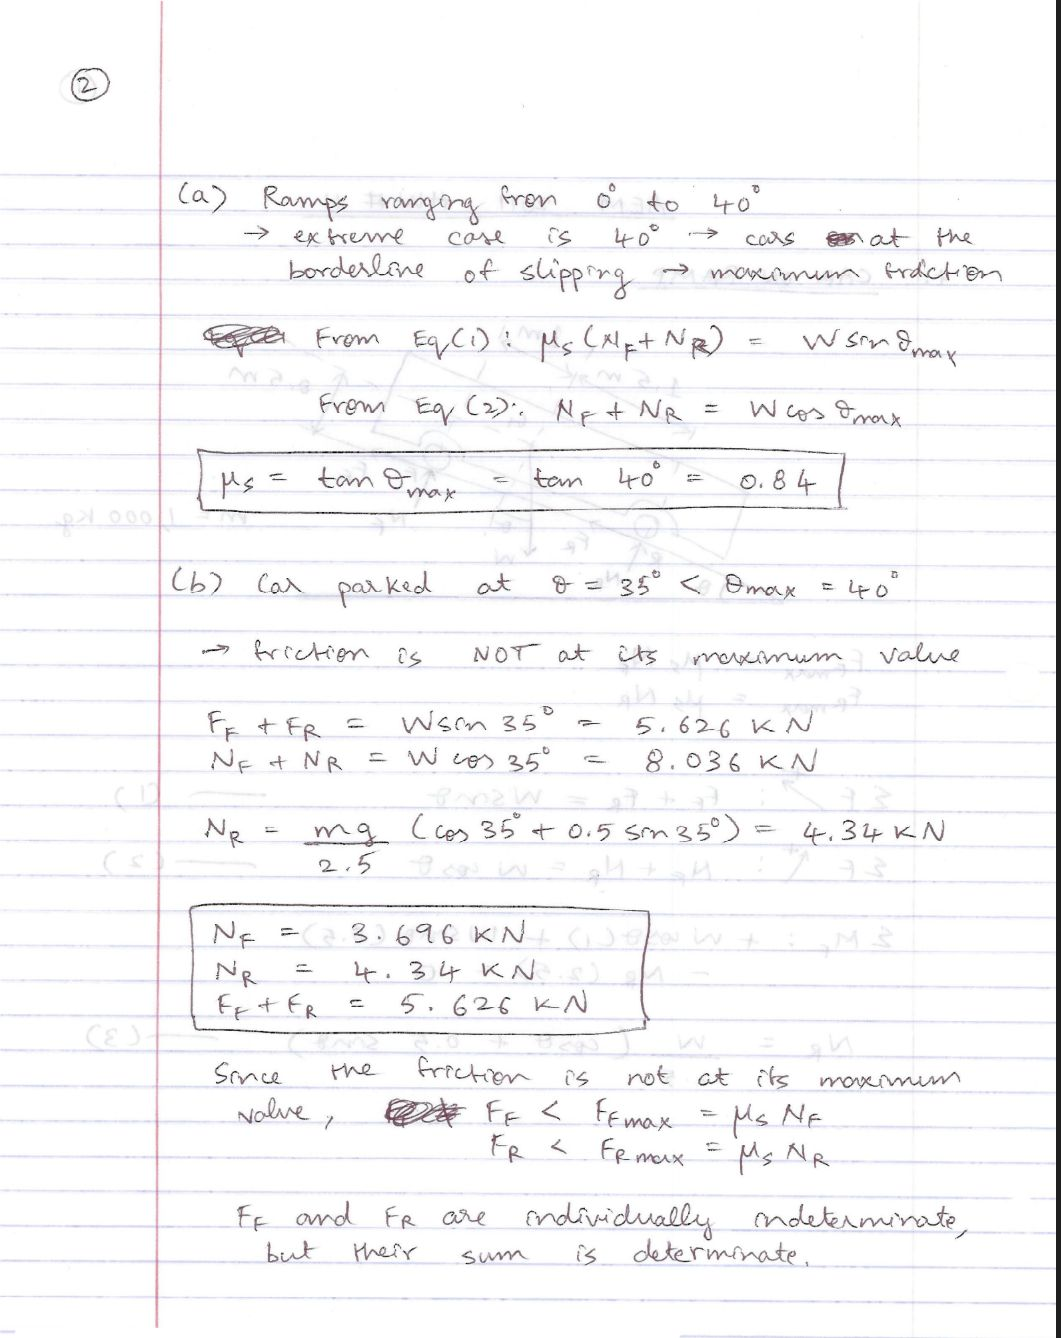 2
(a) Ramps ranging from 0° to 40°
→ extreme case is 40° → cars at the
borderline of slipping → maximum friction
From Eq(1): μs (NF + NR) = W sin θmax
From Eq (2): NF + NR = W cos θmax
μs = tan θmax = tan 40° = 0.84
(b) Car parked at θ = 35° < θmax = 40°
→ friction is NOT at its maximum value
FF + FR = W sin 35° = 5.626 KN
NF + NR = W cos 35° = 8.036 KN
NR = mg/2.5 (cos 35° + 0.5 sin 35°) = 4.34 KN
NF = 3.696 KN
NR = 4.34 KN
FF + FR = 5.626 KN
Since the friction is not at its maximum
value, FF < FFmax = μs NF
FR < FRmax = μs NR
FF and FR are individually indeterminate,
but their sum is determinate.